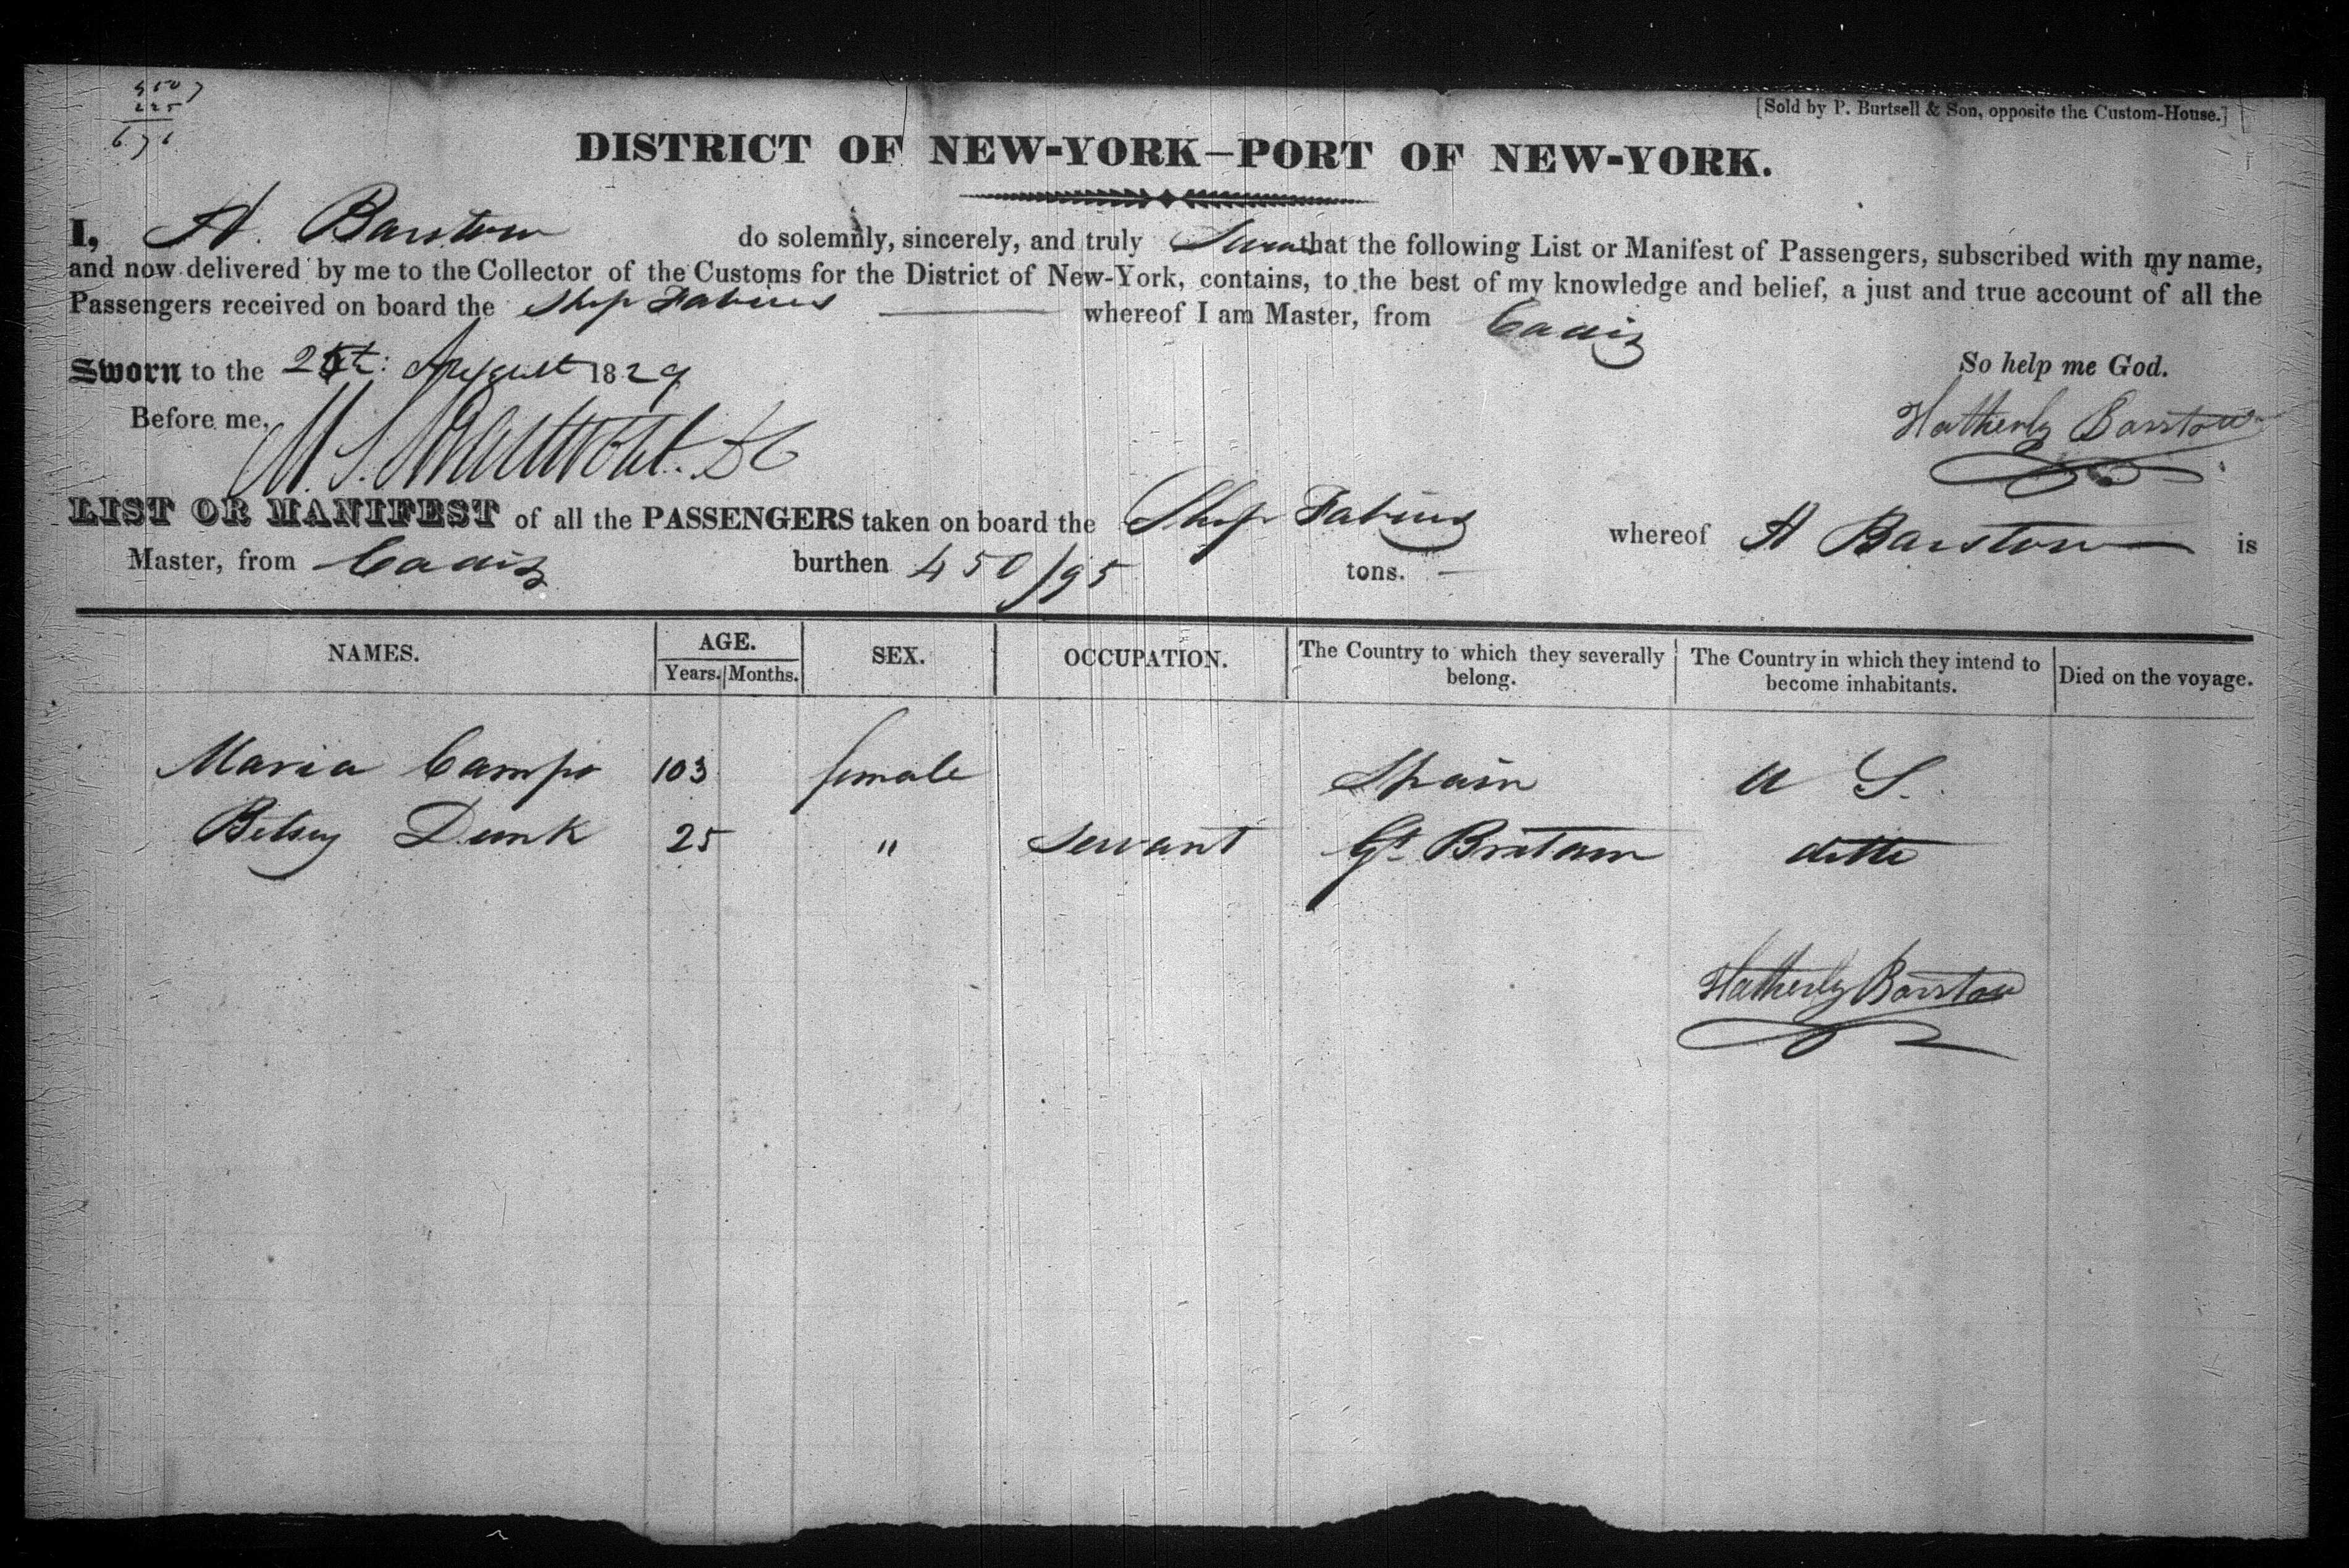 [Sold by P. Burtsell & Son, opposite the Custom-House.]
DISTRICT OF NEW-YORK—PORT OF NEW-YORK.
I, H. Barstow do solemnly, sincerely, and truly Swear that the following List or Manifest of Passengers, subscribed with my name,
and now delivered by me to the Collector of the Customs for the District of New-York, contains, to the best of my knowledge and belief, a just and true account of all the
Passengers received on board the Ship Fabius whereof I am Master, from Cadiz
So help me God.
Sworn to the August 1829
Hatherly Barstow
Before me,
LIST OR MANIFEST of all the PASSENGERS taken on board the Ship Fabius whereof H Barstow is
Master, from Cadiz burthen 450/95 tons.
NAMES. AGE. SEX. OCCUPATION. The Country to which they severally belong. The Country in which they intend to become inhabitants. Died on the voyage.
Years. Months.
Maria Campo 103 female Spain U S.
Betsey Dunk 25 " Servant Gt. Britain ditto
Hatherly Barstow